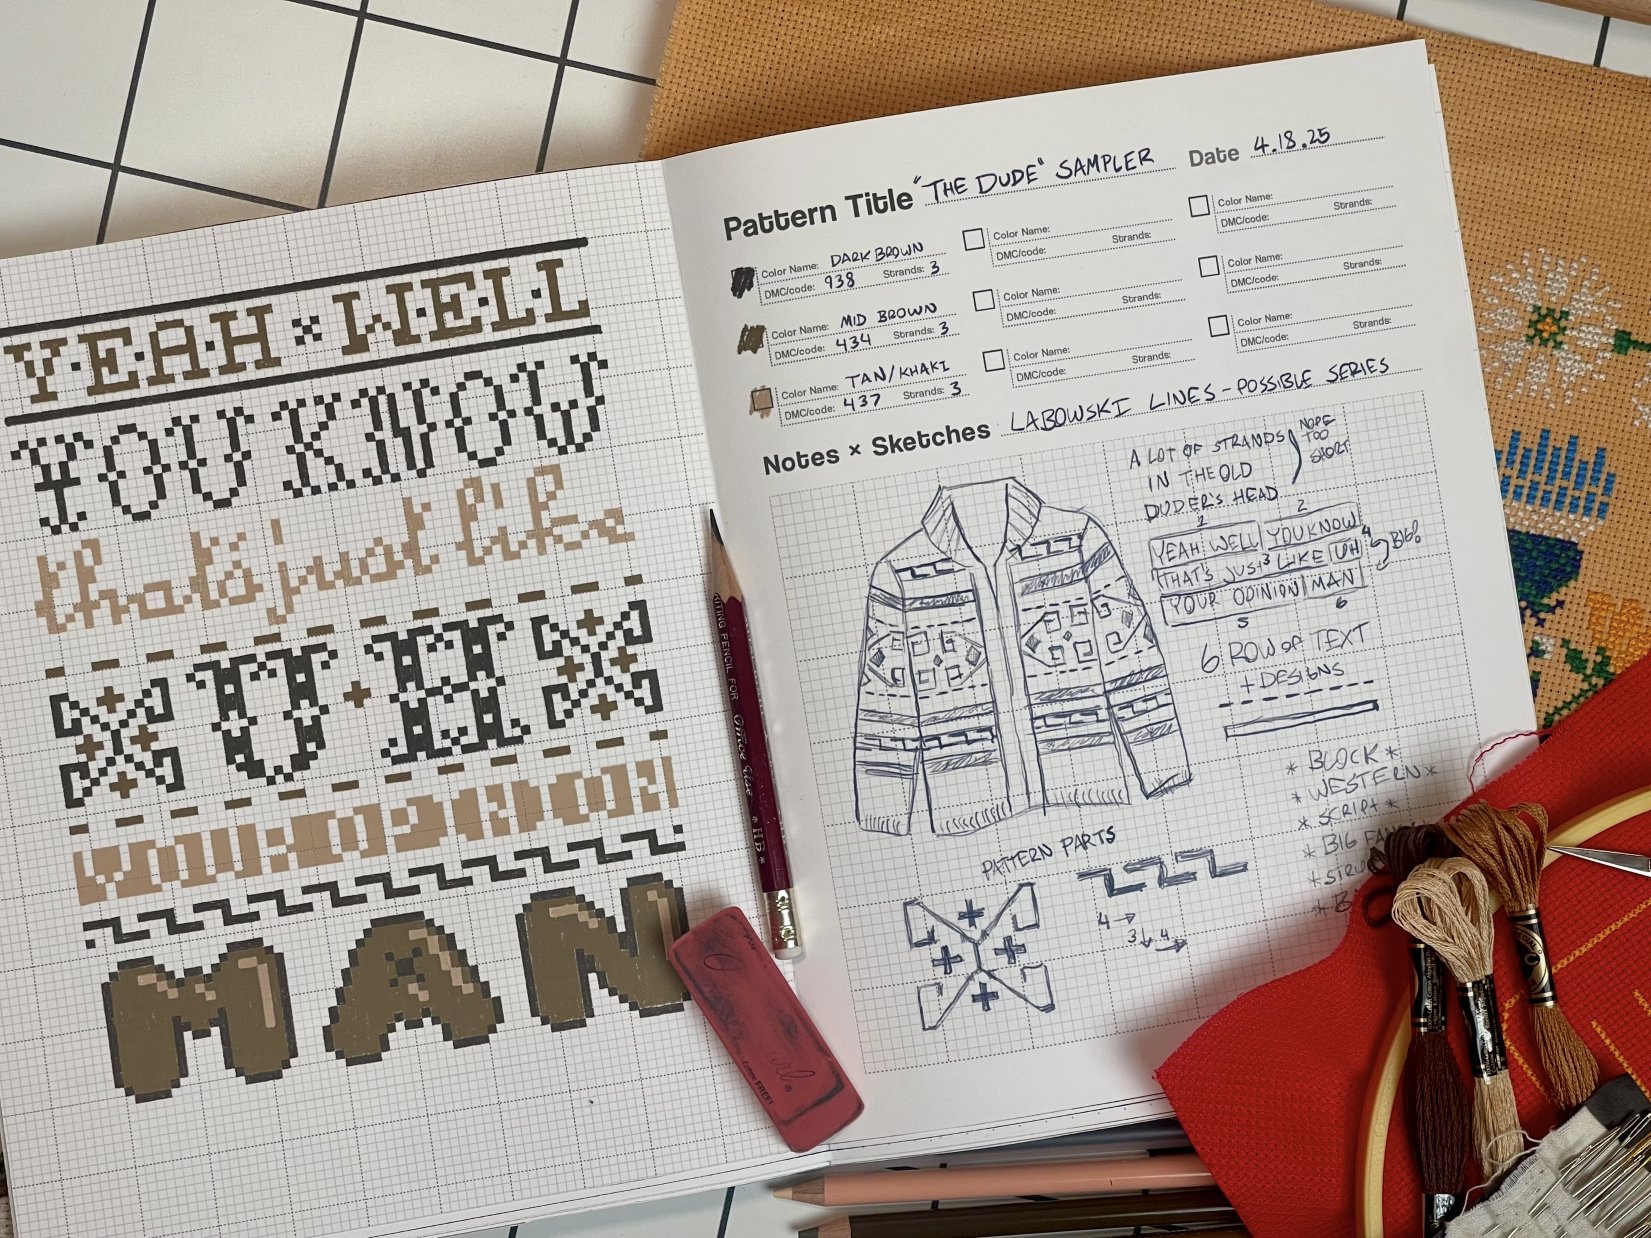 YEAH × WELL
YOU KNOW
that's just like
UH
YOUR OPINION
MAN
Pattern Title "THE DUDE" SAMPLER
Date 4.18.25
Color Name: DARK BROWN
DMC/code: 938 Strands: 3
Color Name:
DMC/code: Strands:
Color Name:
DMC/code: Strands:
Color Name: MID BROWN
DMC/code: 434 Strands: 3
Color Name:
DMC/code: Strands:
Color Name:
DMC/code: Strands:
Color Name: TAN/KHAKI
DMC/code: 437 Strands: 3
Color Name:
DMC/code: Strands:
Color Name:
DMC/code: Strands:
Notes × Sketches LABOWSKI LINES - POSSIBLE SERIES
A LOT OF STRANDS
IN THE OLD
DUDER'S HEAD
NOPE
TOO
SHORT
1 2
YEAH WELL YOU KNOW
THAT'S JUST 3 LIKE UH 4 BIG!
YOUR OPINION MAN
5 6
6 ROW OF TEXT
+ DESIGNS
* BLOCK *
* WESTERN *
* SCRIPT *
* BIG
PATTERN PARTS
4 →
3 ↓ 4 →
PENCIL FOR
* HB *
FREE!